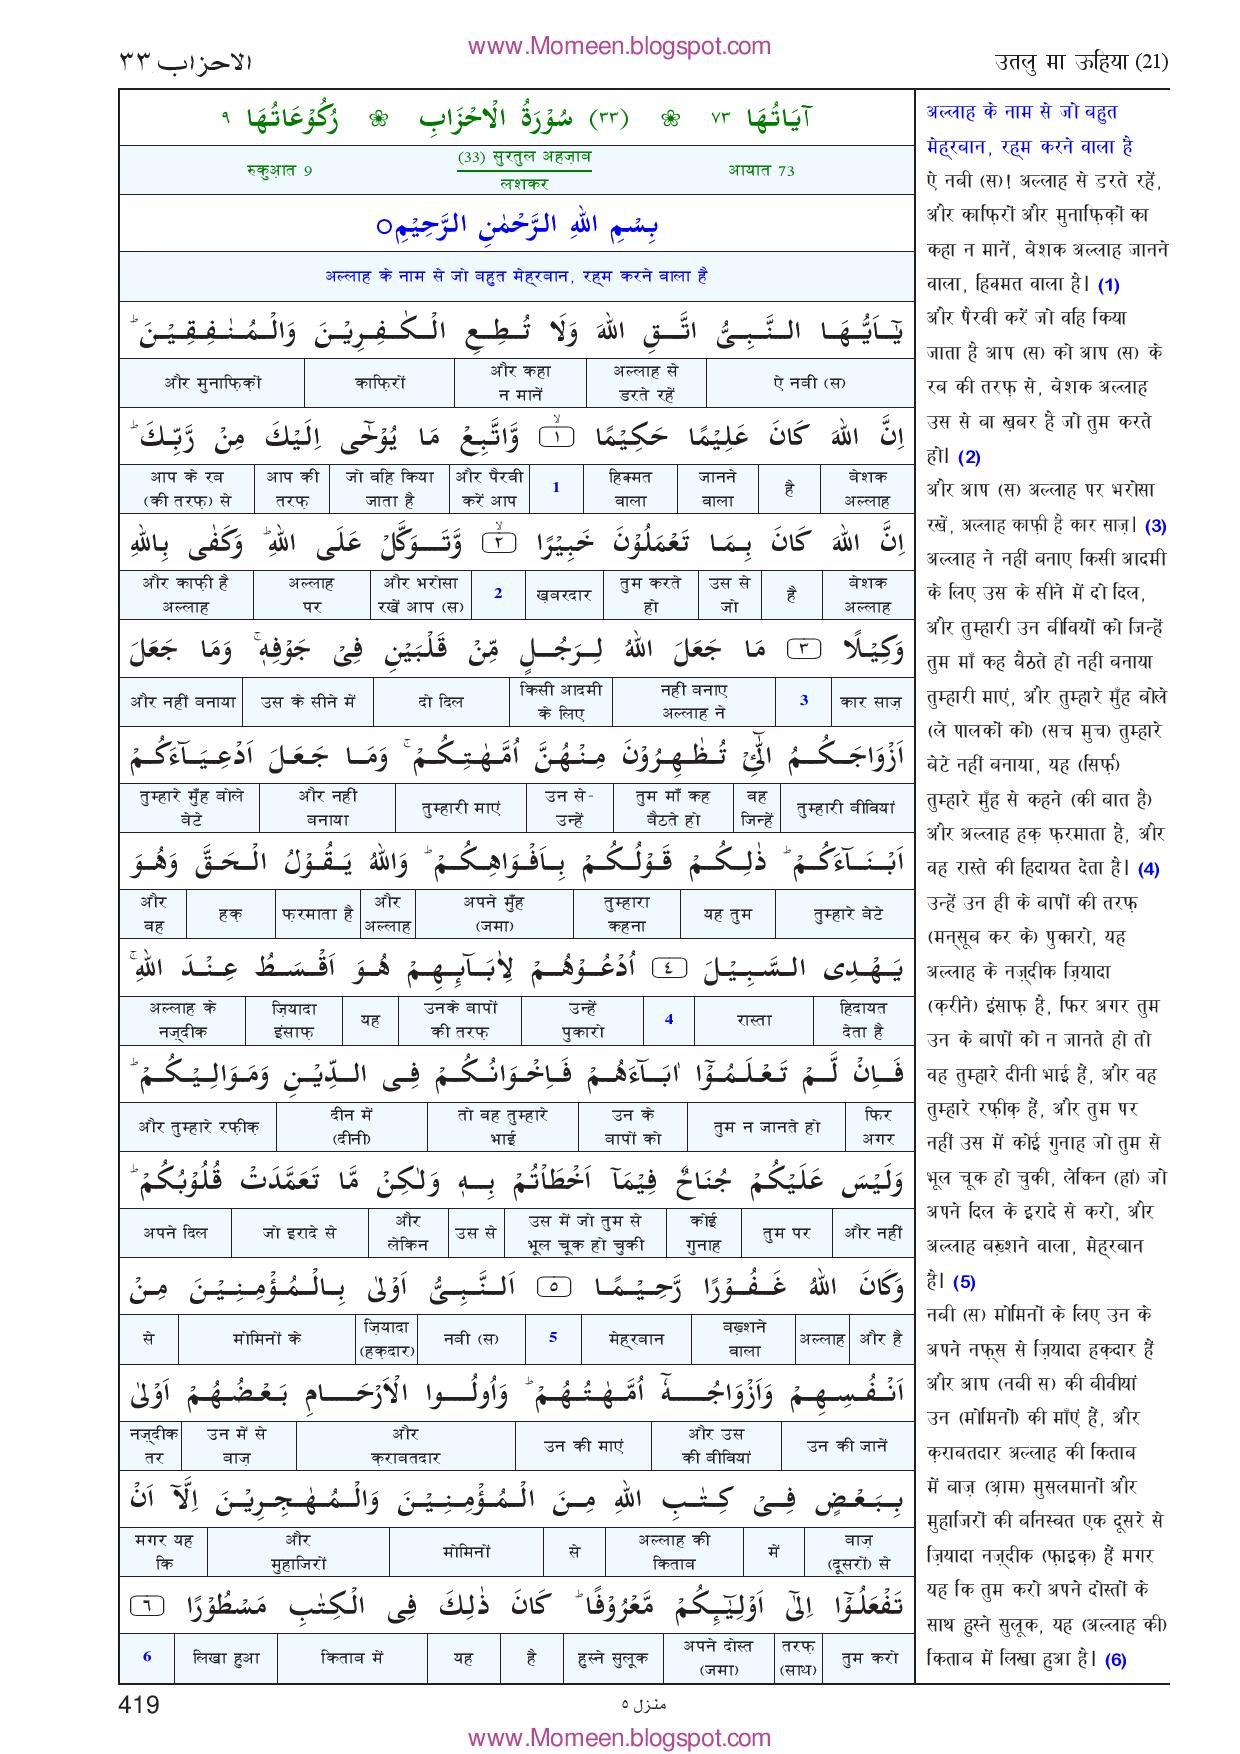 www.Momeen.blogspot.com
الاحزاب ٣٣
उतलु मा ऊहिया (21)
آيَاتُهَا ٧٣ ❀ (٣٣) سُوْرَةُ الْاَحْزَابِ ❀ رُكُوْعَاتُهَا ٩
आयात 73 (33) सुरतुल अहज़ाब लशकर रुकुआ़त 9
بِسْمِ اللهِ الرَّحْمٰنِ الرَّحِيْمِ○
अल्लाह के नाम से जो बहुत मेह्‌रबान, रह्‌म करने वाला है
يٰٓاَيُّهَا النَّبِيُّ اتَّقِ اللهَ وَلَا تُطِعِ الْكٰفِرِيْنَ وَالْمُنٰفِقِيْنَ ؕ
ऐ नबी (स) अल्लाह से डरते रहें और कहा न मानें काफ़िरों और मुनाफ़िक़ों
اِنَّ اللهَ كَانَ عَلِيْمًا حَكِيْمًا ۙ ١ وَّاتَّبِعْ مَا يُوْحٰٓى اِلَيْكَ مِنْ رَّبِّكَ ؕ
बेशक अल्लाह है जानने वाला हिक्मत वाला 1 और पैरवी करें आप जो वहि किया जाता है आप की तरफ़ आप के रब (की तरफ़) से
اِنَّ اللهَ كَانَ بِمَا تَعْمَلُوْنَ خَبِيْرًا ۙ ٢ وَّتَوَكَّلْ عَلَى اللهِ ؕ وَكَفٰى بِاللهِ
बेशक अल्लाह है उस से जो तुम करते हो ख़बरदार 2 और भरोसा रखें आप (स) अल्लाह पर और काफ़ी है अल्लाह
وَكِيْلًا ٣ مَا جَعَلَ اللهُ لِرَجُلٍ مِّنْ قَلْبَيْنِ فِيْ جَوْفِهٖ ۚ وَمَا جَعَلَ
कार साज़ 3 नहीं बनाए अल्लाह ने किसी आदमी के लिए दो दिल उस के सीने में और नहीं बनाया
اَزْوَاجَكُمُ الّٰٓئِ تُظٰهِرُوْنَ مِنْهُنَّ اُمَّهٰتِكُمْ ۚ وَمَا جَعَلَ اَدْعِيَآءَكُمْ
तुम्हारी बीवियां वह जिन्हें तुम माँ कह बैठते हो उन से- उन्हें तुम्हारी माएं और नहीं बनाया तुम्हारे मुँह बोले बेटे
اَبْنَآءَكُمْ ؕ ذٰلِكُمْ قَوْلُكُمْ بِاَفْوَاهِكُمْ ؕ وَاللهُ يَقُوْلُ الْحَقَّ وَهُوَ
तुम्हारे बेटे यह तुम तुम्हारा कहना अपने मुँह (जमा) और अल्लाह फ़रमाता है हक़ और वह
يَهْدِى السَّبِيْلَ ٤ اُدْعُوْهُمْ لِاٰبَآئِهِمْ هُوَ اَقْسَطُ عِنْدَ اللهِ ۚ
हिदायत देता है रास्ता 4 उन्हें पुकारो उनके बापों की तरफ़ यह ज़ियादा इंसाफ़ अल्लाह के नज़्दीक
فَاِنْ لَّمْ تَعْلَمُوْٓا اٰبَآءَهُمْ فَاِخْوَانُكُمْ فِى الدِّيْنِ وَمَوَالِيْكُمْ ؕ
फिर अगर तुम न जानते हो उन के बापों को तो वह तुम्हारे भाई दीन में (दीनी) और तुम्हारे रफ़ीक़
وَلَيْسَ عَلَيْكُمْ جُنَاحٌ فِيْمَآ اَخْطَاْتُمْ بِهٖ وَلٰكِنْ مَّا تَعَمَّدَتْ قُلُوْبُكُمْ ؕ
और नहीं तुम पर कोई गुनाह उस में जो तुम से भूल चूक हो चुकी उस से और लेकिन जो इरादे से अपने दिल
وَكَانَ اللهُ غَفُوْرًا رَّحِيْمًا ٥ اَلنَّبِيُّ اَوْلٰى بِالْمُؤْمِنِيْنَ مِنْ
और है अल्लाह बख़्शने वाला मेह्‌रबान 5 नबी (स) ज़ियादा (हक़दार) मोमिनों के से
اَنْفُسِهِمْ وَاَزْوَاجُهٗٓ اُمَّهٰتُهُمْ ؕ وَاُولُوا الْاَرْحَامِ بَعْضُهُمْ اَوْلٰى
उन की जानें और उस की बीवियां उन की माएं और क़राबतदार उन में से बाज़ नज़्दीक तर
بِبَعْضٍ فِيْ كِتٰبِ اللهِ مِنَ الْمُؤْمِنِيْنَ وَالْمُهٰجِرِيْنَ اِلَّآ اَنْ
बाज़ (दूसरों) से में अल्लाह की किताब से मोमिनों और मुहाजिरों मगर यह कि
تَفْعَلُوْٓا اِلٰٓى اَوْلِيٰٓئِكُمْ مَّعْرُوْفًا ؕ كَانَ ذٰلِكَ فِى الْكِتٰبِ مَسْطُوْرًا ٦
तुम करो तरफ़ (साथ) अपने दोस्त (जमा) हुस्ने सुलूक है यह किताब में लिखा हुआ 6
अल्लाह के नाम से जो बहुत
मेह्‌रबान, रह्‌म करने वाला है
ऐ नबी (स)! अल्लाह से डरते रहें,
और काफ़िरों और मुनाफ़िक़ों का
कहा न मानें, बेशक अल्लाह जानने
वाला, हिक्मत वाला है। (1)
और पैरवी करें जो वहि किया
जाता है आप (स) को आप (स) के
रब की तरफ़ से, बेशक अल्लाह
उस से बा ख़बर है जो तुम करते
हो। (2)
और आप (स) अल्लाह पर भरोसा
रखें, अल्लाह काफ़ी है कार साज़। (3)
अल्लाह ने नहीं बनाए किसी आदमी
के लिए उस के सीने में दो दिल,
और तुम्हारी उन बीवियों को जिन्हें
तुम माँ कह बैठते हो नही बनाया
तुम्हारी माएं, और तुम्हारे मुँह बोले
(ले पालकों को) (सच मुच) तुम्हारे
बेटे नहीं बनाया, यह (सिर्फ़)
तुम्हारे मुँह से कहने (की बात है)
और अल्लाह हक़ फ़रमाता है, और
वह रास्ते की हिदायत देता है। (4)
उन्हें उन ही के बापों की तरफ़
(मन्सूब कर के) पुकारो, यह
अल्लाह के नज़्दीक ज़ियादा
(क़रीने) इंसाफ़ है, फिर अगर तुम
उन के बापों को न जानते हो तो
वह तुम्हारे दीनी भाई हैं, और वह
तुम्हारे रफ़ीक़ हैं, और तुम पर
नहीं उस में कोई गुनाह जो तुम से
भूल चूक हो चुकी, लेकिन (हां) जो
अपने दिल के इरादे से करो, और
अल्लाह बख़्शने वाला, मेह्‌रबान
है। (5)
नबी (स) मोमिनों के लिए उन के
अपने नफ़्स से ज़ियादा हक़दार हैं
और आप (नबी स) की बीवीयां
उन (मोमिनों) की माँएं हैं, और
क़राबतदार अल्लाह की किताब
में बाज़ (आ़म) मुसलमानों और
मुहाजिरों की बनिस्बत एक दूसरे से
ज़ियादा नज़्दीक (फ़ाइक़) हैं मगर
यह कि तुम करो अपने दोस्तों के
साथ हुस्ने सुलूक, यह (अल्लाह की)
किताब में लिखा हुआ है। (6)
419
منزل ٥
www.Momeen.blogspot.com